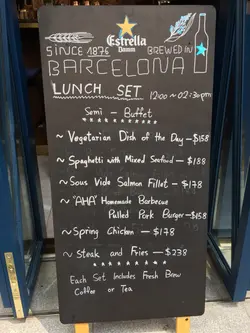 Estrella
Damm
SINCE 1876 BREWED IN
BARCELONA
LUNCH SET
12:00 ~ 02:30pm
Semi - Buffet
~ Vegetarian Dish of the Day - $158
~ Spaghetti with Mixed Seafood - $188
~ Sous Vide Salmon Fillet - $178
~ 'AHA' Homemade Barbecue
Pulled Pork Burger - $158
~ Spring Chicken - $178
~ Steak and Fries - $238
Each Set Includes Fresh Brew
Coffee or Tea